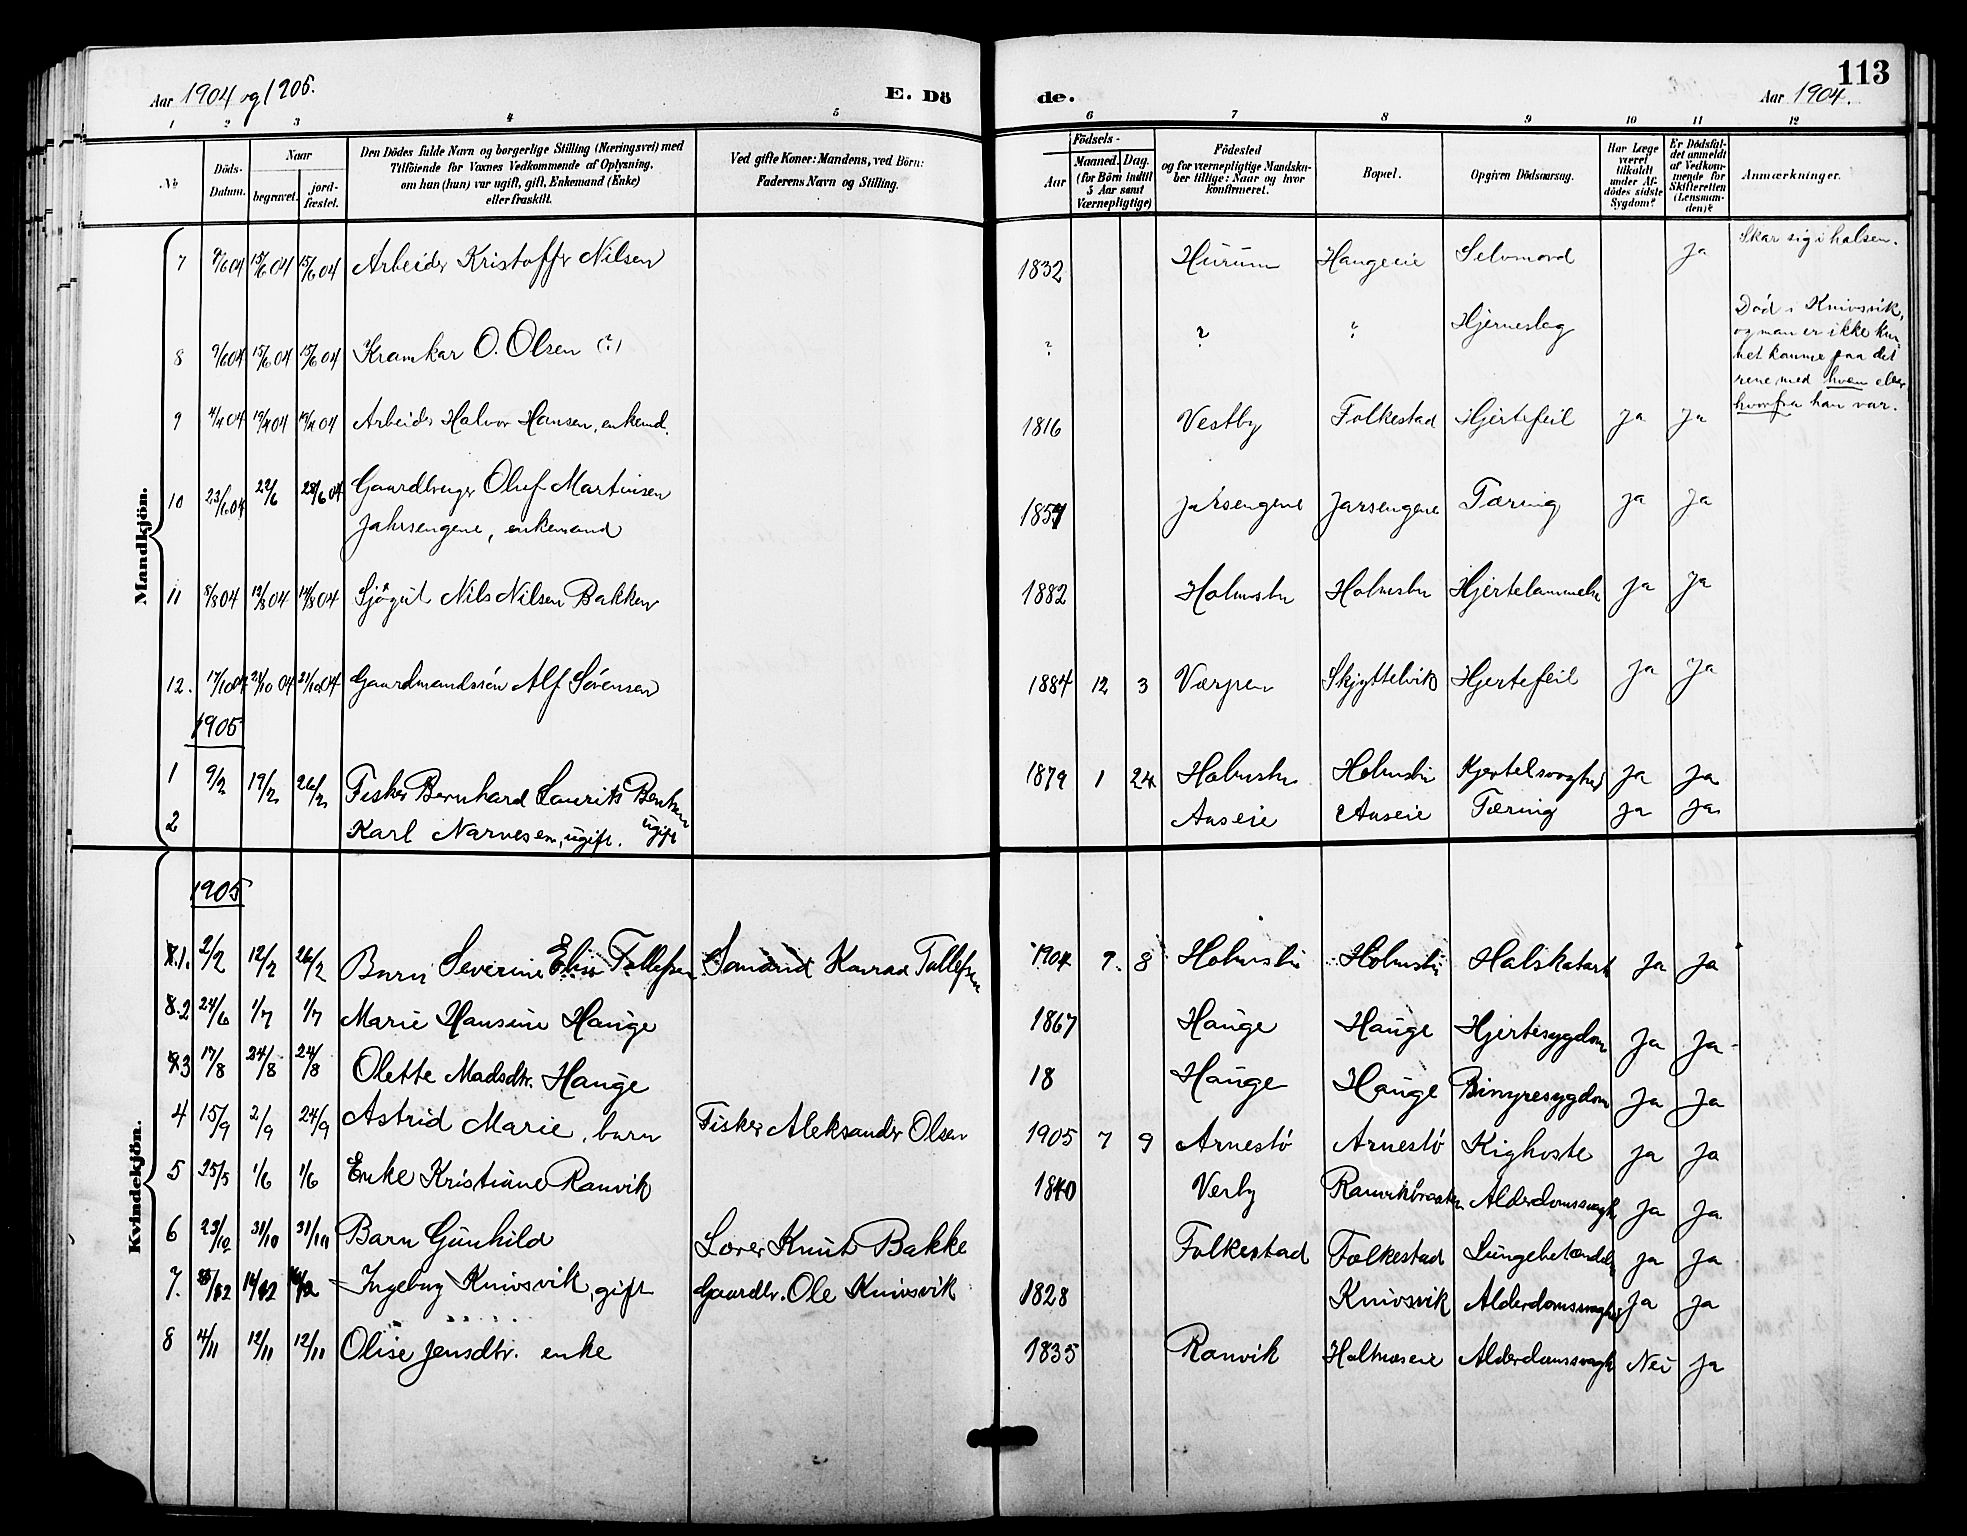 Aar 1904 og 1905.
E. Dö
de.
113
Aar 1904.
1 2 3 4 5 6 7 8 9 10 11 12
No
Döds-
Datum.
Naar
begravet.
jord-
fæstet.
Den Dödes fulde Navn og borgerlige Stilling (Næringsvei) med
Tilföiende for Voxnes Vedkommende af Oplysning,
om han (hun) var ugift, gift, Enkemand (Enke)
eller fraskilt.
Ved gifte Koner: Mandens, ved Börn:
Faderens Navn og Stilling.
Födsels-
Aar
Maaned. Dag.
(for Börn indtil
5 Aar samt
Værnepligtige)
Födested
og for værnepligtige Mandska-
ber tillige: Naar og hvor
konfirmeret.
Bopæl.
Opgiven Dödsaarsag.
Har Læge
været
tilkaldt
under Af-
dödes sidste
Sygdom?
Er Dödsfal-
det anmeldt
af Vedkom-
mende for
Skifteretten
(Lensman-
den)?
Anmærkninger.
Mandkjön.
7 9/6 04 15/6 04 15/6 04 Arbeider Kristoffer Nilsen 1832 Hurum Haugeeie Selvmord ja Skar sig i halsen.
8 9/6 04 15/6 04 15/6 04 Kramkar O. Olsen (?) ? ? ? Hjerneslag
Död i Knivsvik,
og man er ikke kun-
net komme paa det
rene med hvem eller
hvorfra han var.
9 4/4 04 19/4 04 19/4 04 Arbeider Halvor Hansen, enkemd. 1816 Vestby Folkestad Hjertefeil ja ja
10 23/6 04 28/6 04 Gaardbruger Oluf Martinsen
Jahrsengene, enkemand 1857 Jarsengene Jarsengene Tæring ja ja
11 8/8 04 14/8 04 Sjögut Nils Nilsen Bakken 1882 Holmsbu Holmsbu Hjertelammelse ja ja
12. 17/10 04 21/10 04 21/10 04 Gaardmandssön Alf Sörensen 1884 12 3 Værpen Skjyttelvik Hjertefeil ja ja
1905
1 9/2 19/2 26/2 Fisker Bernhard Laurits
ugift 1879 1 24 Holmsbu Holmsbu Kjertelsvaghed ja ja
2 Karl Narvesen, ugift. Auseie Auseie Tæring ja ja
Kvindekjön.
1905
1. 2/2 12/2 26/2 Barn Severine Elise Tollefsen Konrad Tollefsen 1904 9 8 Holmsbu Holmsbu Halskatarh Ja Ja
2 24/6 1/7 1/7 Marie Hansine Hauge 1867 Hauge Hauge Hjertesygdom Ja Ja
3 17/8 24/8 24/8 Olette Madsdtr. Hauge 18 Hauge Hauge Binyresygdom Ja Ja
4 15/9 2/9 24/9 Astrid Marie, barn Fisker Aleksander Olsen 1905 7 9 Arnestö Arnestö Kighoste Ja Ja
5 25/5 1/6 1/6 Enke Kristiane Ranvik 1840 Verby Ranvikbraaten Alderdomssvagh Ja Ja
6 23/10 31/10 31/10 Barn Gunhild Knut Bakke Folkestad Folkestad Lungebetændelse ja Ja
7. 14/12 Ingeborg Knivsvik, gift Gaardbr. Ole Knivsvik 1828 Knivsvik Alderdomssvaghed Ja Ja
8 4/11 12/11 12/11 Olise Jensdtr. enke 1835 Ranvik Holtnæseie Alderdomssvagh Nei Ja